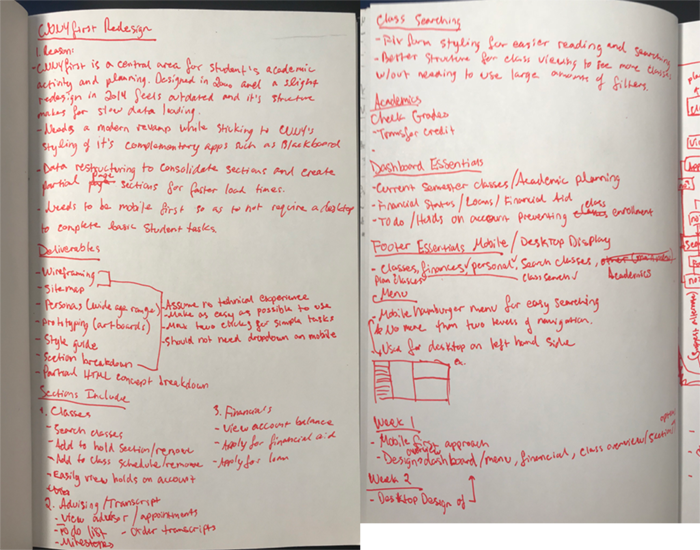 CUNYfirst Redesign
1. Reason:
- CUNYfirst is a central area for student's academic
activity and planning. Designed in 2000 and a slight
redesign in 2014 feels outdated and it's structure
makes for slow data loading.
- Needs a modern revamp while sticking to CUNY's
styling of it's complementary apps such as Blackboard
- Data restructuring to consolidate sections and create
partial page sections for faster load times.
- Needs to be mobile first so as to not require a desktop
to complete basic student tasks.
Deliverables
- Wireframing
- Sitemap
- Personas (wide age range)
- prototyping (artboards)
- Style guide
- Section breakdown
- Partial HTML concept breakdown
- Assume no technical experience
- Make as easy as possible to use
- Max two clicks for simple tasks
- Should not need dropdown on mobile
Sections Include
1. Classes
- Search classes
- Add to hold section/remove
- Add to class schedule/remove
- Easily view holds on account
2. Advising/Transcript
- View advisor/appointments
- To do list
- Order transcripts
- Milestones
3. Financials
- View account balance
- Apply for financial aid
- Apply for loan
Class Searching
- Fix form styling for easier reading and searching
- Better structure for class viewing to see more classes
w/out needing to use large amounts of filters.
Academics
Check Grades
- Transfer credit
-
Dashboard Essentials
- Current Semester classes/Academic planning
- Financial Status/Loans/Financial Aid
- To do/Holds on account preventing class enrollment
Footer Essentials Mobile/Desktop Display
- Classes, finances, personal, Search classes,
Plan classes
class search
Academics
Menu
- Mobile hamburger menu for easy searching
No more than two levels of navigation.
Use for desktop on left hand side
ex.
Week 1
- Mobile first approach
- Design dashboard/menu, financial, class overview/section
overview
Week 2
- Desktop Design of